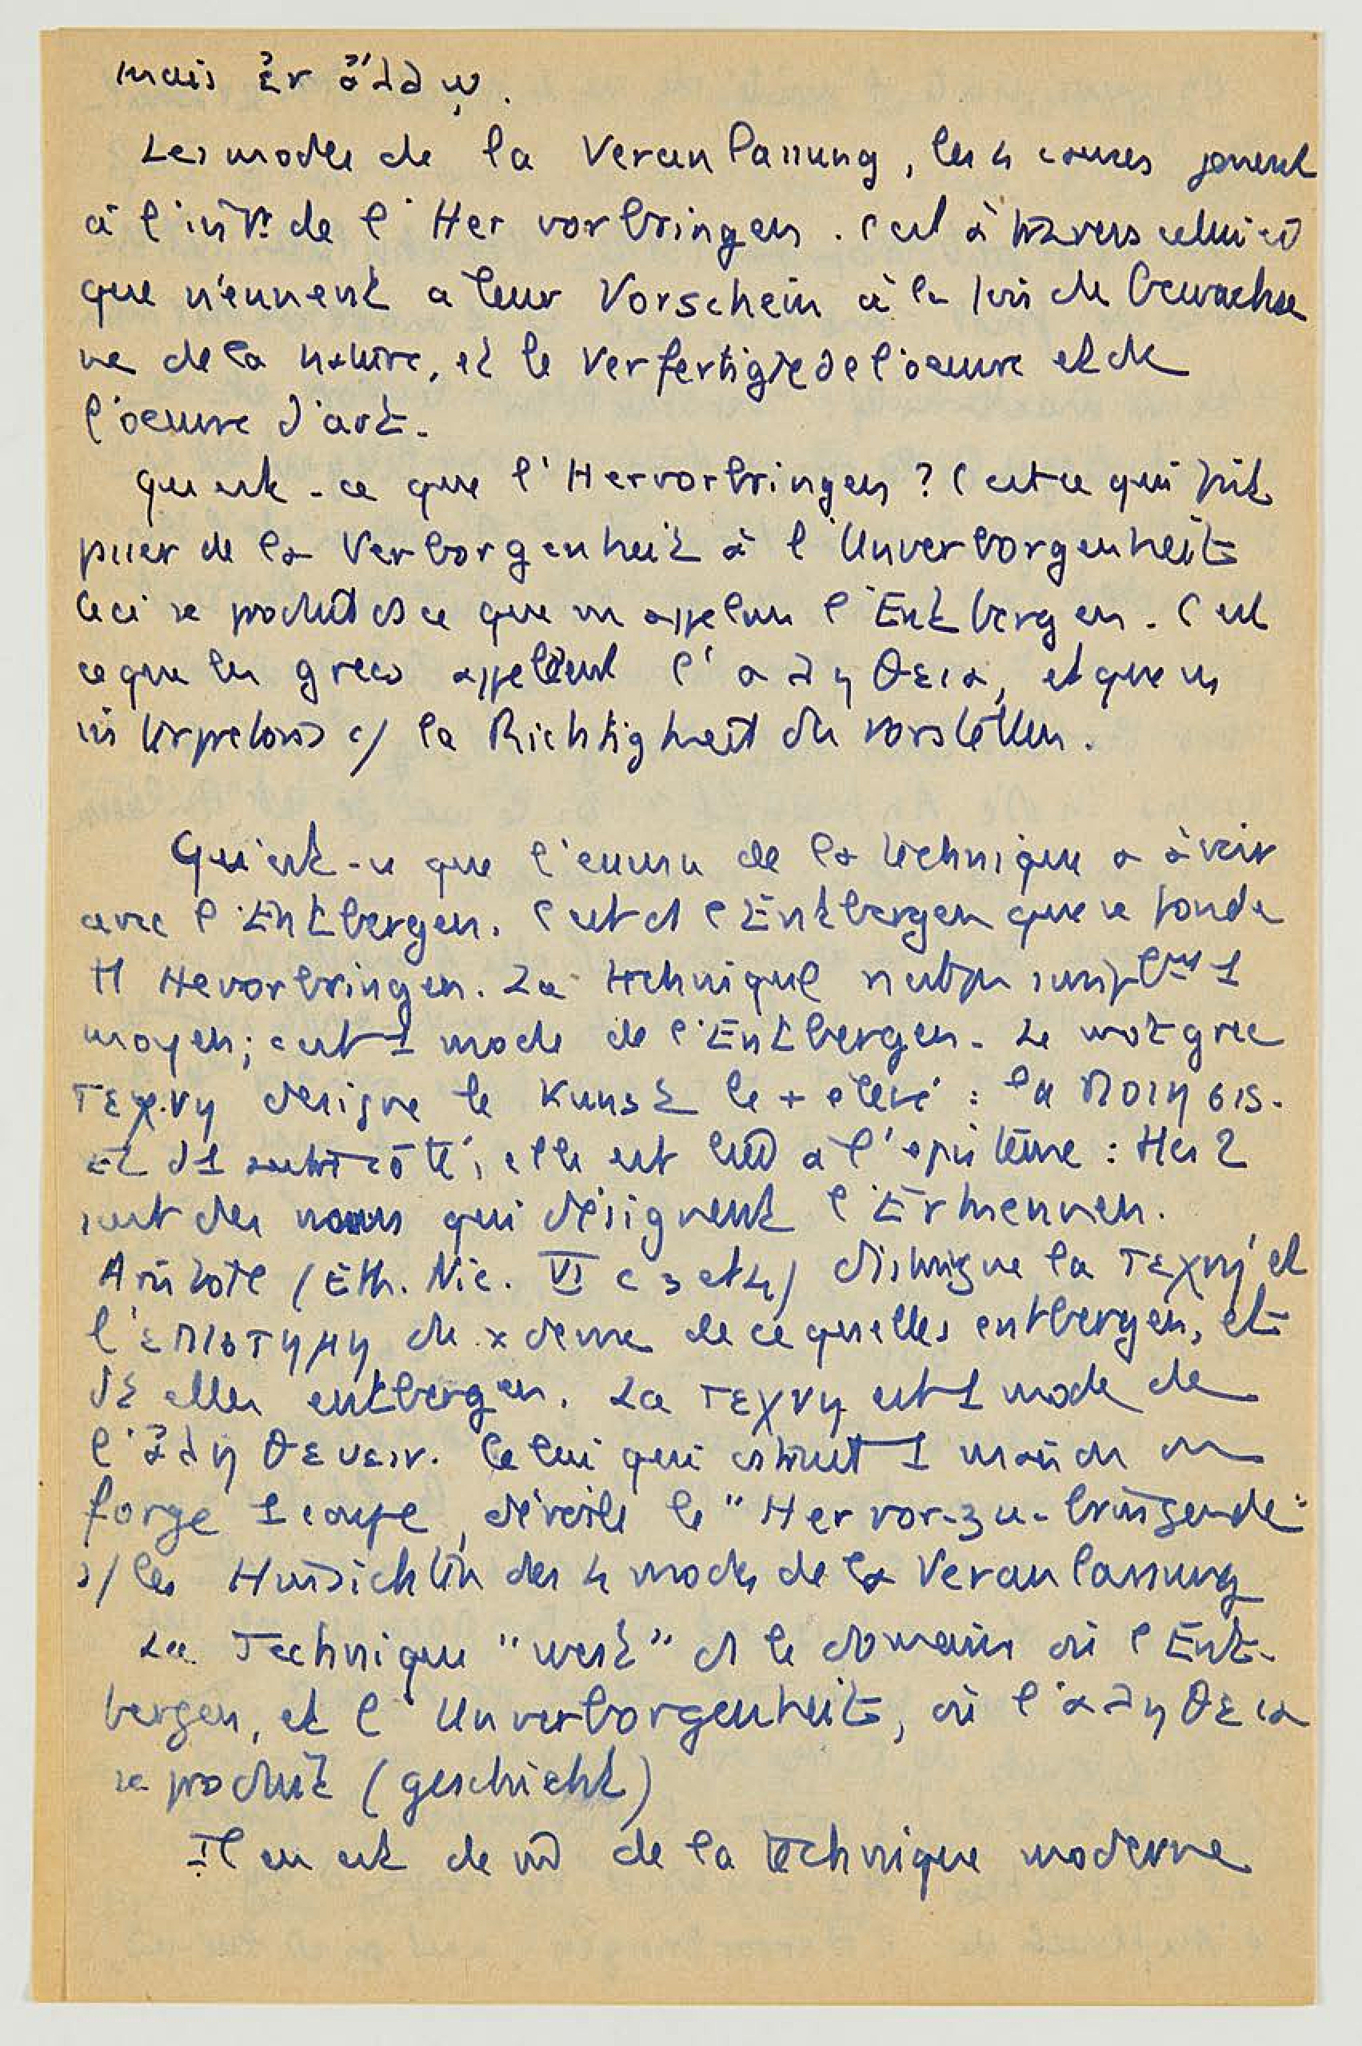 mais ἐν ἄλλῳ.
Les modes de la Veranlassung, les 4 causes jouent
à l'intr de l'Hervorbringen. C'est à travers celui-ci
que viennent à leur Vorschein à la fois le Gewachse
ne de la nature, et le Verfertigte de l'oeuvre et de
l'oeuvre d'art.
Qu'est-ce que l'Hervorbringen ? C'est ce qui fait
passer de la Verborgenheit à l'Unverborgenheit
Ceci se produit ds ce que ns appelons l'Entbergen. C'est
ce que les grecs appelaient l'αληθεια, et que ns
interpretons c/ la Richtigkeit du vorstellen.
Qu'est-ce que l'essence de la technique a à voir
avec l'Entbergen. C'est ds l'Entbergen que se fonde
tt Hevorbringen. La technique n'est pas simplemt 1
moyen; c'est 1 mode de l'Entbergen. Le mot grec
τεχνη designe le Kunst le + élevé : la ποιησις.
Et d'1 autre côté, elle est liée à l'epistémè : les 2
sont des noms qui désignent l'Erkennen.
Aristote (Eth. Nic. VI c 3 et 4) distingue la τεχνη et
l'επιστημη du x de vue de ce qu'elles entbergen, et
dt elles entbergen. La τεχνη est 1 mode de
l'ἀληθευειν. Celui qui construit 1 maison ou
forge 1 coupe, dévoile le "Her vor-zu-bringende"
s/ les Hinsichten des 4 modes de la Veranlassung
La Technique "west" ds le domaine où l'Ent-
bergen, et l'Unverborgenheit, où l'αληθεια
se produit (geschieht)
Il en est de m̂ de la technique moderne